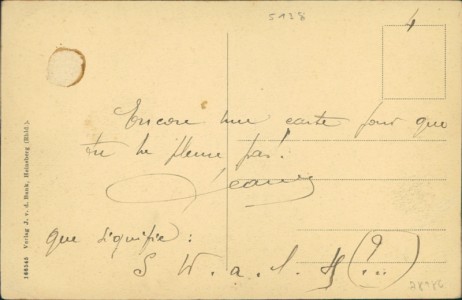 5938
4
Encore une carte pour que
tu ne pleure pas!
Jeanne
que signifie:
S W. a. L. H (?...)
186345 Verlag J. v. d. Bank, Heinsberg (Rhld.).